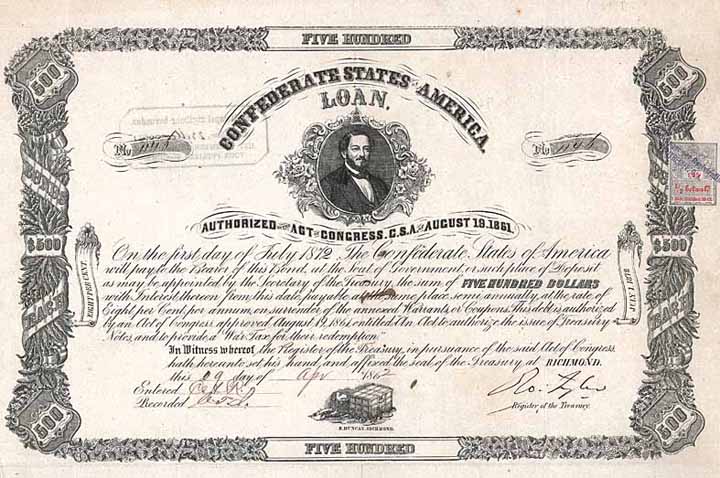 FIVE HUNDRED
500
500
CONFEDERATE STATES OF AMERICA.
LOAN.
No
No
AUTHORIZED BY ACT OF CONGRESS. C.S.A. OF AUGUST 19. 1861.
$500
$500
EIGHT PER CENT.
JULY 1 1872
On the first day of July 1872 The Confederate States of America
will pay to the Bearer of this Bond, at the Seat of Government, or such place of Deposit
as may be appointed by the Secretary of the Treasury, the sum of FIVE HUNDRED DOLLARS
with Interest thereon from this date, payable same place semi annually, at the rate of
Eight per Cent. per annum, on surrender of the annexed Warrants, or Coupons. This debt is authorized
by an Act of Congress approved August 19. 1861. entitled An Act to authorize the issue of Treasury
Notes, and to provide a War Tax for their redemption.
In Witness whereof, the Register of the Treasury, in pursuance of the said Act of Congress,
hath hereunto set his hand, and affixed the seal of the Treasury, at RICHMOND.
this day of Apr 1862
Entered
Recorded
Ro. Tyler
Register of the Treasury.
E. DUNCAN, RICHMOND.
500
500
FIVE HUNDRED